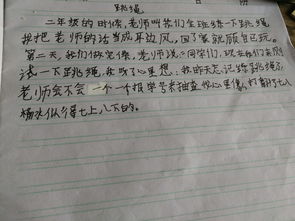 跳绳
二年级的时候,老师叫我们全班练一下跳绳
我把老师的话当成耳边风,回了家就顾自己玩。
第二天,我们做完操,老师说:同学们,现在我们去测
试一下跳绳,我听了心里想:我昨天忘记练跳绳了,
老师会不会一个一个报学号来抽查,我心里像打翻了七八
桶水似得七上八下的。